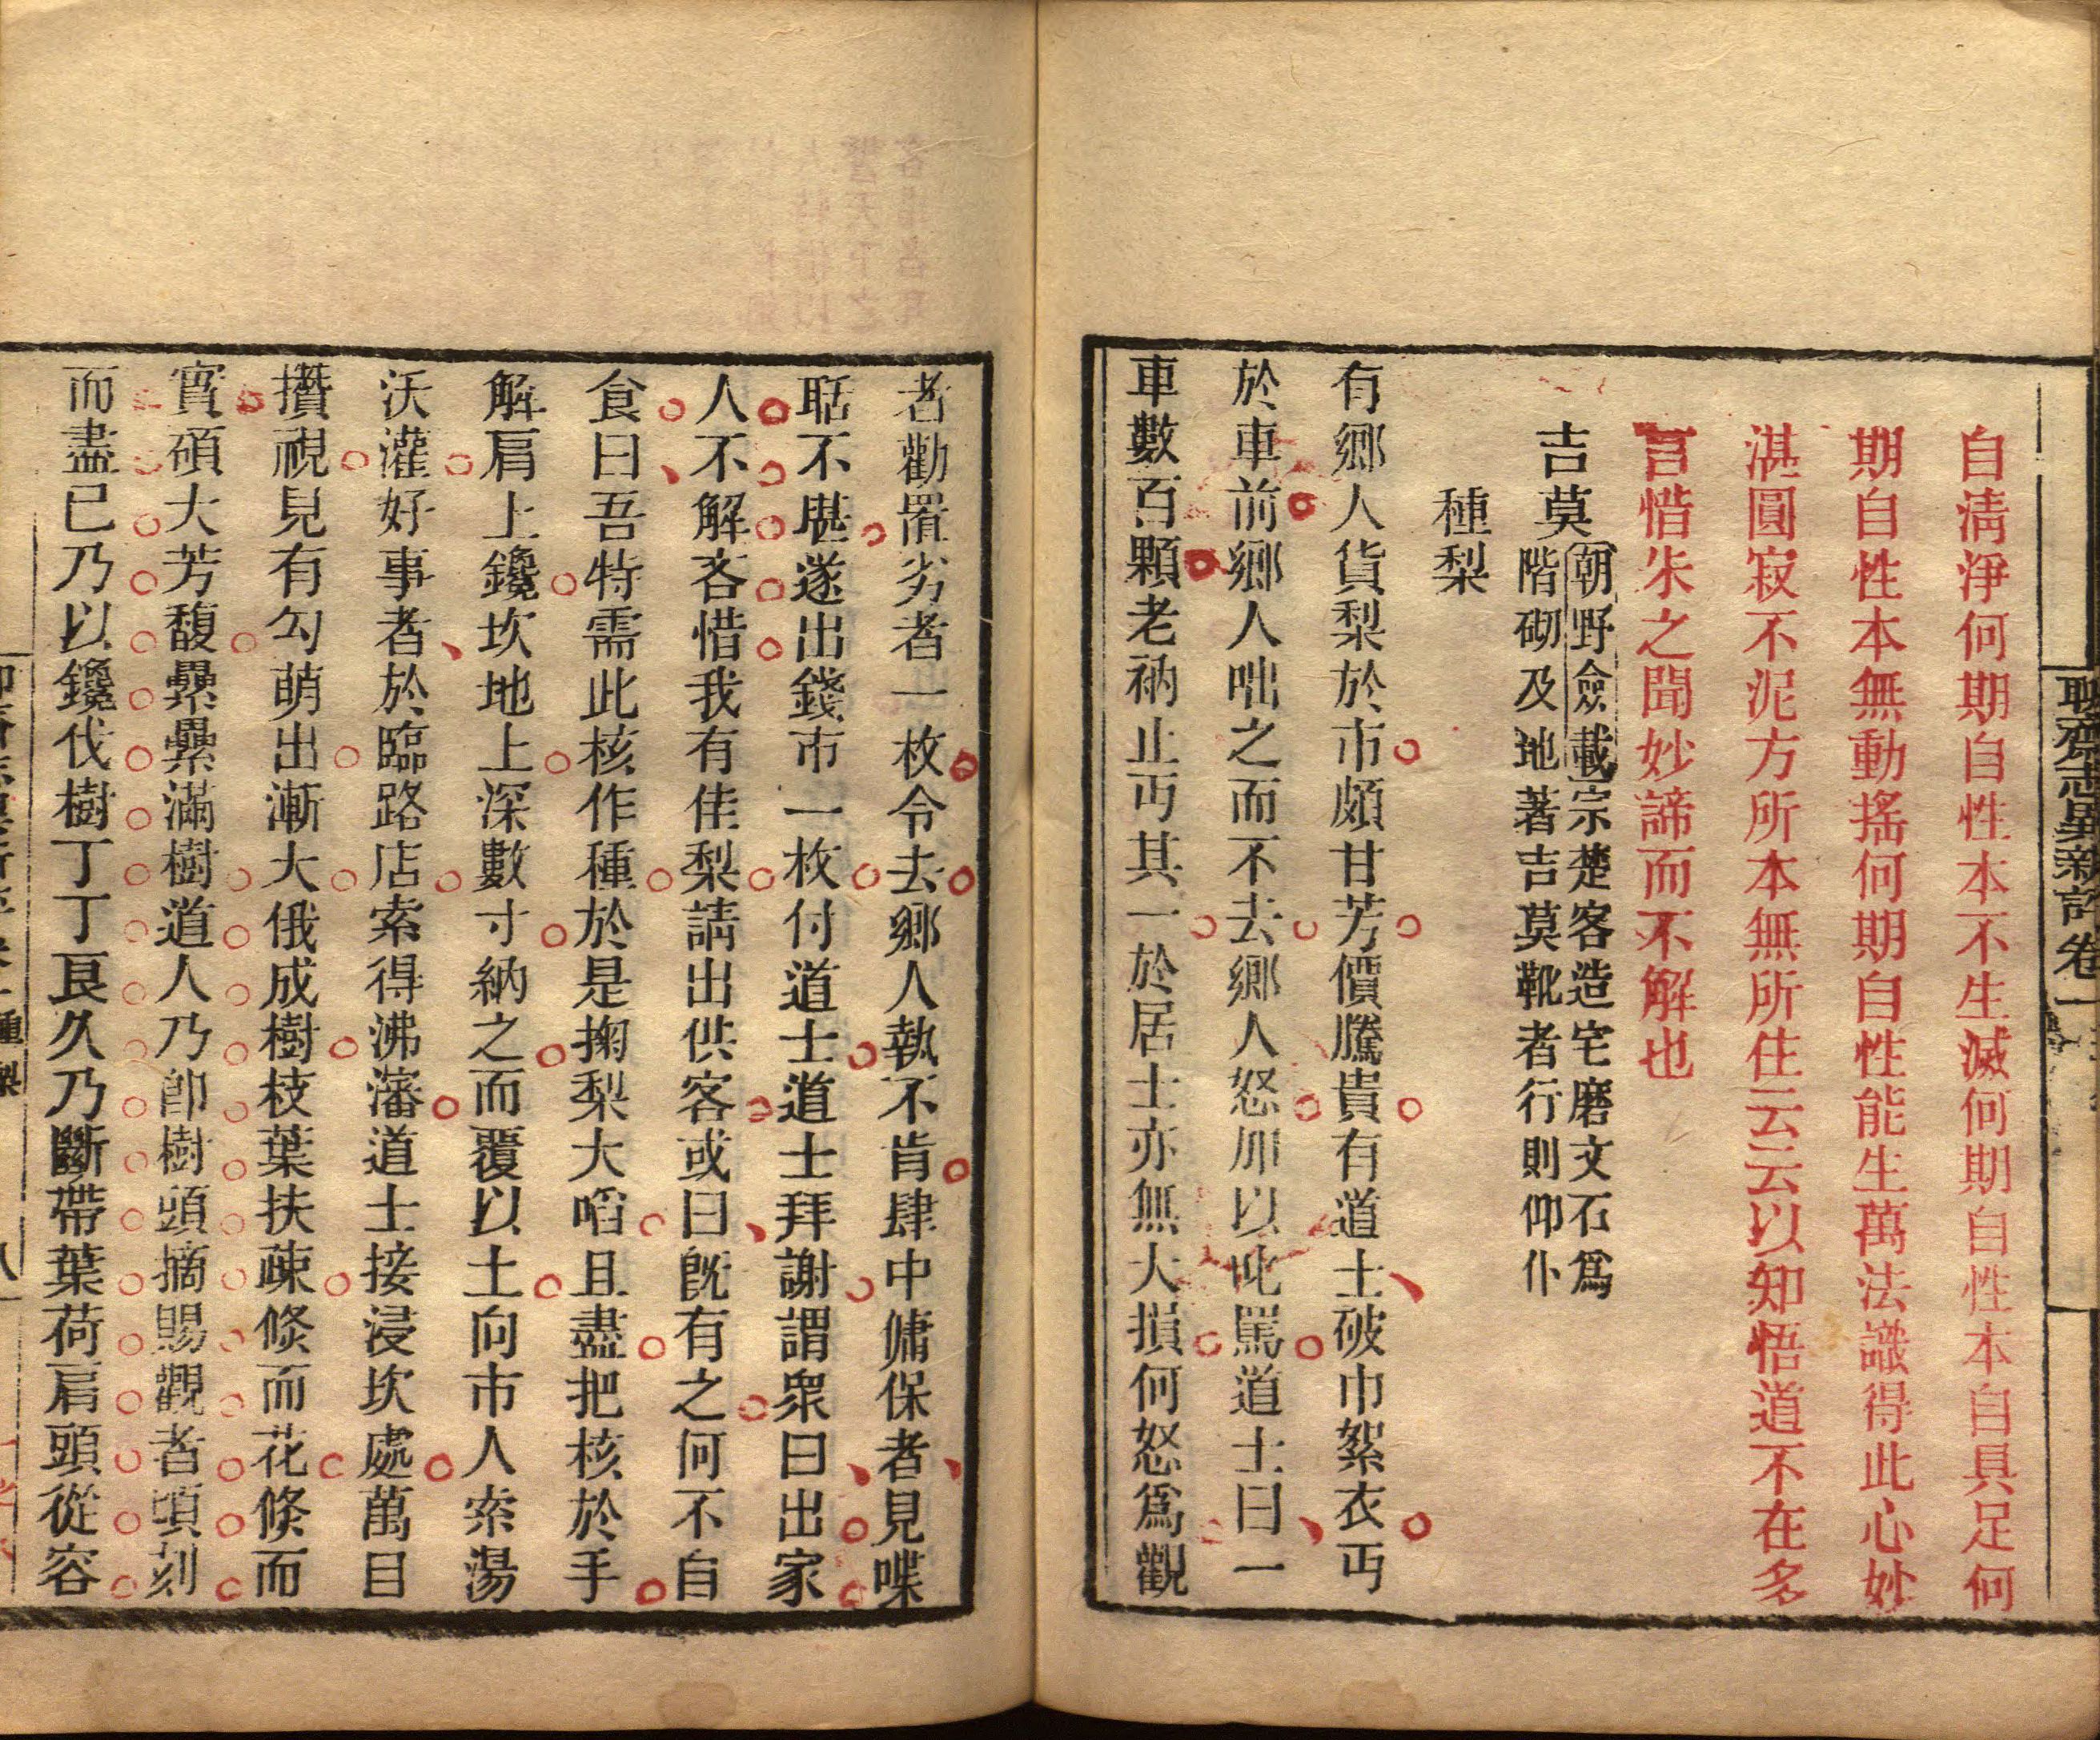 聊齋志異新評卷一
自淸淨何期自性本不生滅何期自性本自具足何
期自性本無動搖何期自性能生萬法識得此心妙
湛圓寂不泥方所本無所住云云以知悟道不在多
言惜朱之聞妙諦而不解也
吉莫
朝野僉載宗楚客造宅磨文石爲
階砌及地著吉莫靴者行則仰仆
種梨
有鄉人貨梨於市頗甘芳價騰貴有道士破巾絮衣丐
於車前鄉人咄之而不去鄉人怒加以叱罵道士曰一
車數百顆老衲止丐其一於居士亦無大損何怒爲觀
者勸置劣者一枚令去鄉人執不肯肆中傭保者見喋
聒不堪遂出錢市一枚付道士道士拜謝謂衆曰出家
人不解吝惜我有佳梨請出供客或曰旣有之何不自
食曰吾特需此核作種於是掬梨大啗且盡把核於手
解肩上鑱坎地上深數寸納之而覆以土向市人索湯
沃灌好事者於臨路店索得沸瀋道士接浸坎處萬目
攢視見有勾萌出漸大俄成樹枝葉扶疎倏而花倏而
實碩大芳馥纍纍滿樹道人乃卽樹頭摘賜觀者頃刻
而盡已乃以鑱伐樹丁丁良久乃斷帶葉荷肩頭從容
種梨
八